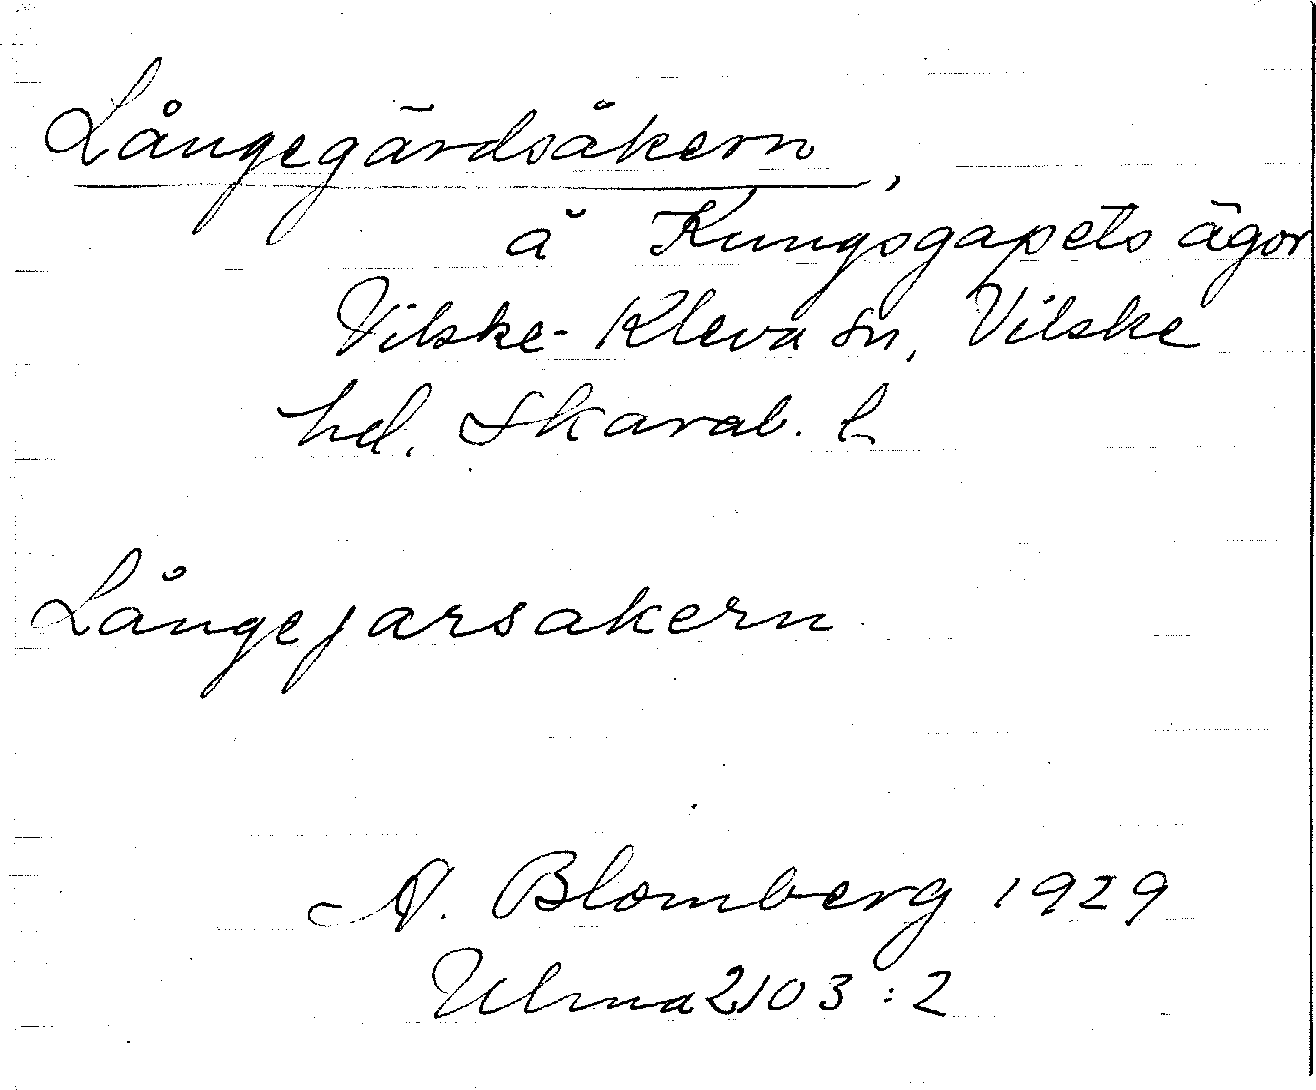 Långegärdsåkern,
å Kungsgapets ägor
Vilske-Kleva sn, Vilske
hd. Skarab. l
Långejarsakern
A. Blomberg 1929
Ulma 2103:2